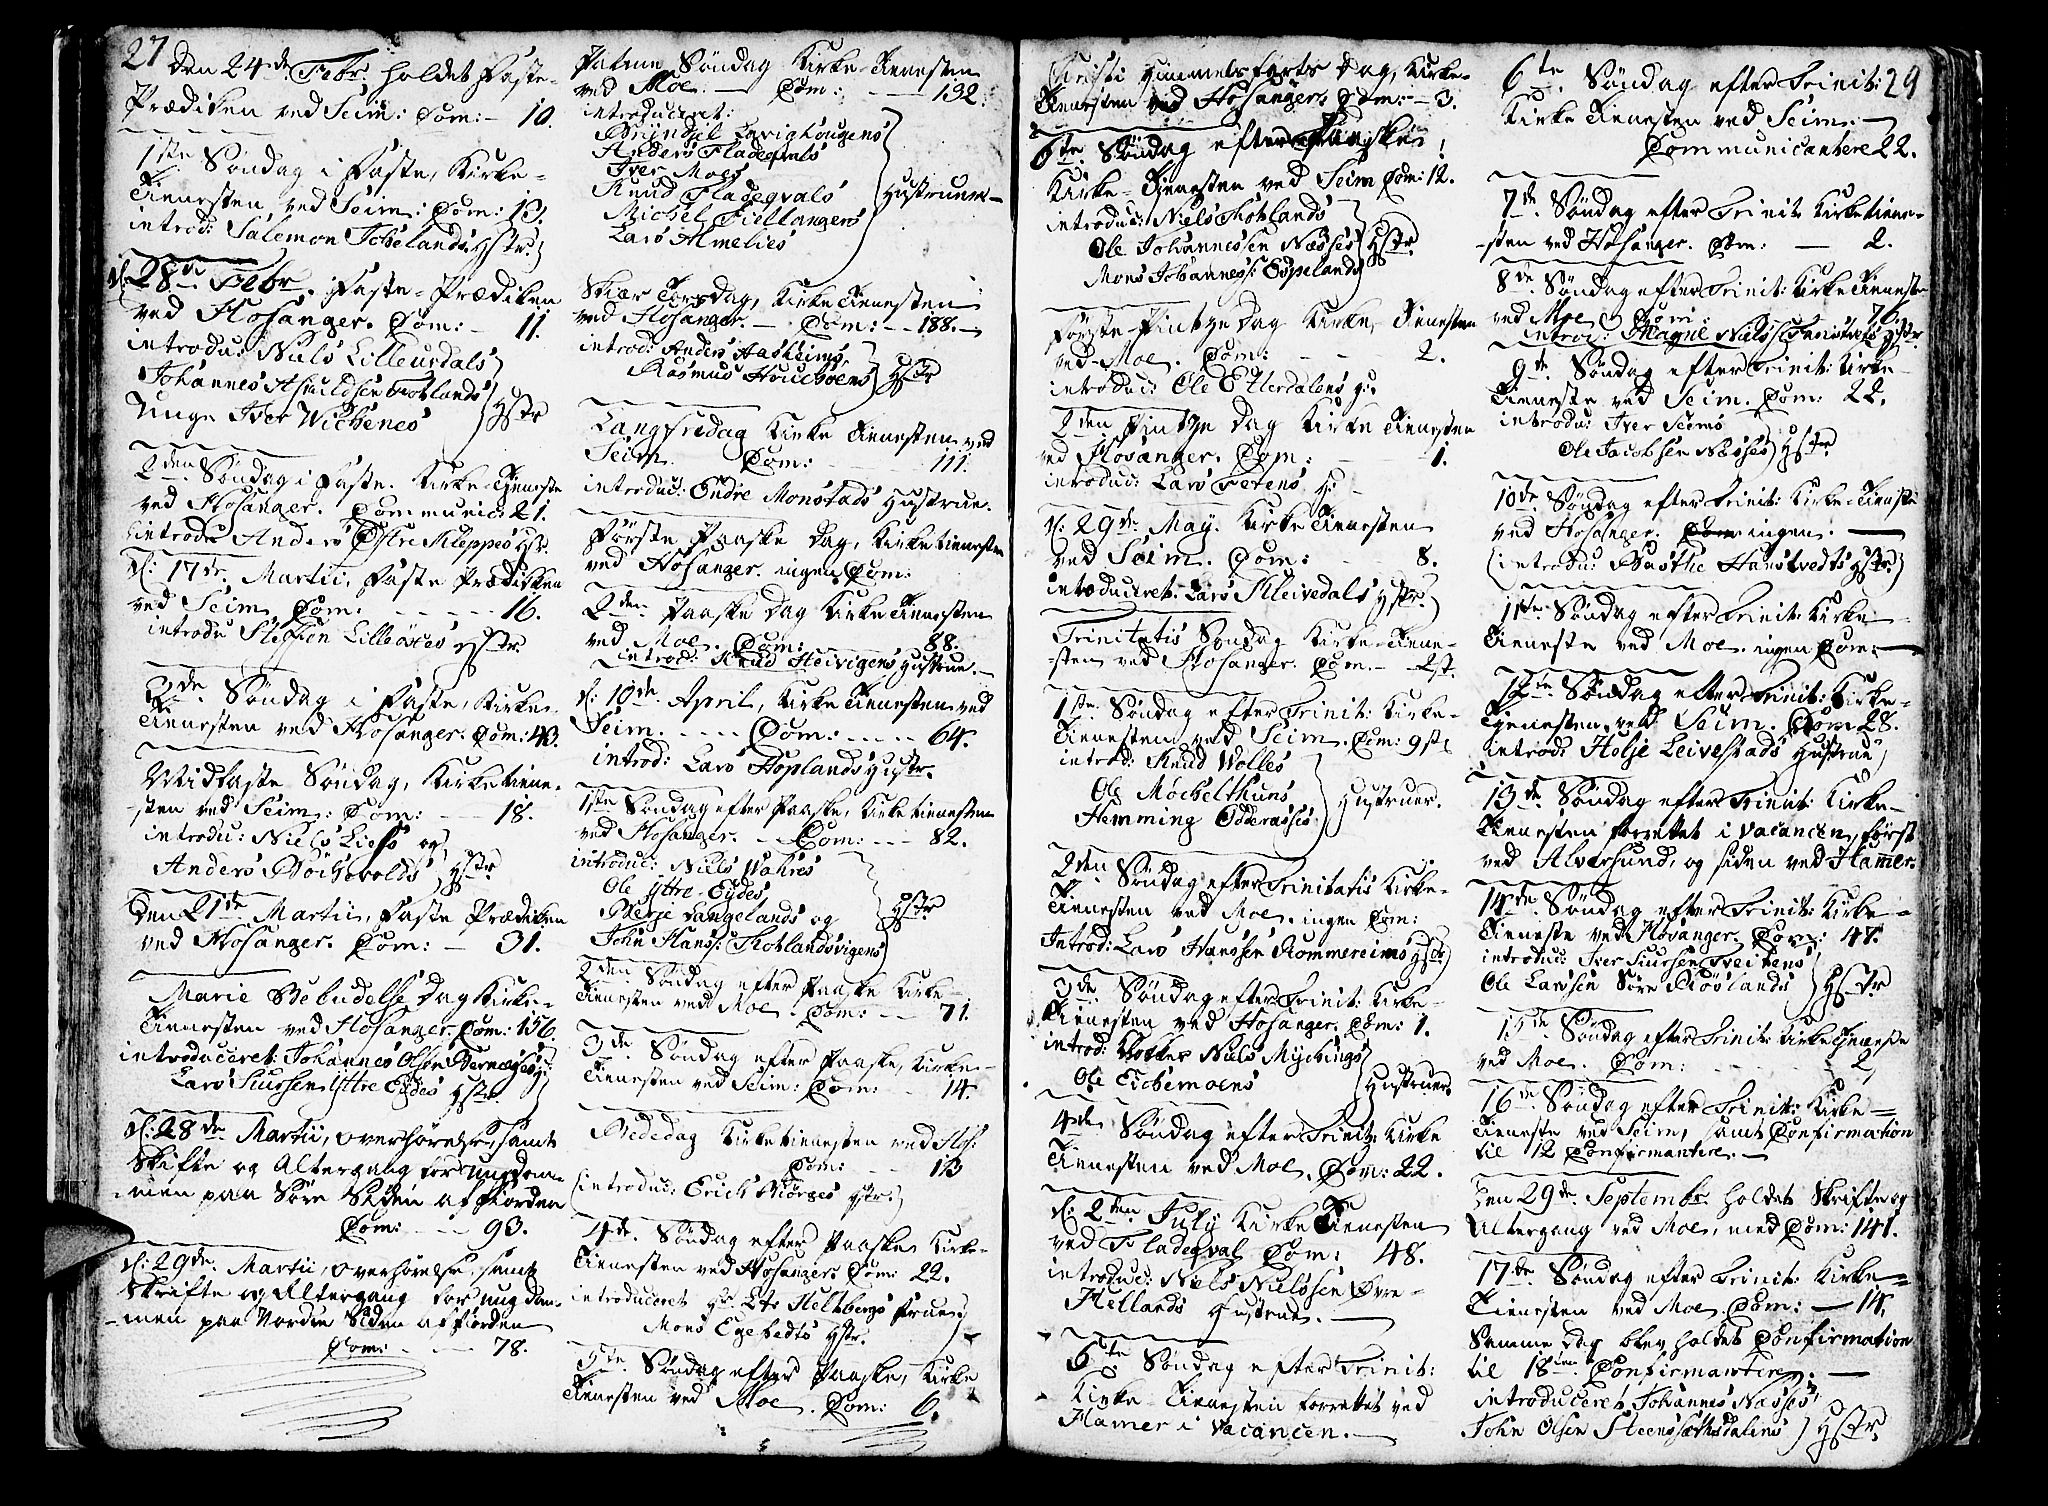 27
den 24de Febr. holdet Faste-
Prædiken ved Seim: Com: - 10.
1ste Søndag i Faste, Kirke-
Tienesten ved Seim: Com: 13.
introd: Salemon Tobelands Hstr:
d: 28de Febr. Faste-Prædiken
ved Hosanger. Com: - 11.
introdu: Niels Lilleurdals
Johannes Asmildsen Fotlands
Unge Iver Wichenes } Hstr
2den Søndag i Faste. Kirke-Tieneste
ved Hosanger. Communic: 21.
introdu Anders Østre Kleppes Hstr.
d: 17de Martii, Faste Prædiken
ved Seim Com: - - - - 16.
introdu Steffen Lilleøses Hstr.
3de Søndag i Faste, Kirke-
Tienesten ved Hosanger. Com: 43.
Midfaste Søndag, Kirketiene-
-sten ved Seim: Com: - - 18.
introdu: Niels Liefs og
Anders Bochevolds } Hstr
den 21de Martii, Faste Prædiken
ved Hosanger. Com: - 31.
Marie Bebudelse Dag Kirke-
Tienesten ved Hosanger. Com: 156.
introduceret: Johannes Olsen Bernæses
Lars Siursen Yttre Eydes Hstr.
d: 28de Martii, overhørelse, samt
Skifte og Altergang for ungdom-
-men paa Søre Siden af Fiorden
Com: - - 93.
d: 29de Martii, overhørelse, samt
Skrifte og Altergang for ungdom-
-men paa Nordre Siden af fiorden
Com: - - 78.
Palme Søndag Kirke-Tienesten
ved Moe. - Com: - - 132.
introduceret:
Brÿndel Lavighougens
Anders Fladeqvals
Iver Moes
Knud Fladeqvals
Michel Fiellangers
Lars Almelies } Hustruer
Skiær Torsdag, Kirke Tienesten
ved Hosanger. - Com: - 188.
introd: Anders Aasheims
Rasmus Houchoens } Hstr
Langfredag Kirke Tienesten ved
Seim. Com: - - 111.
introduc: Endre Monstads Hustrue.
Første Paaske Dag, Kirketienesten
ved Hosanger. ingen Com:
2den Paaske Dag Kirke Tienesten
ved Moe. Com: - - 88.
introd: Knud Heivigens Hustrue.
d: 10de April, Kirke Tienesten ved
Seim. - - - Com: - - - 64.
introd: Lars Hoplands Hustr.
1ste Søndag efter Paaske, Kirketienesten
ved Hosanger. - Com: - - 82.
introduc: Niels Wahres
Ole Yttre-Eydes,
Børge Langelands og
John Hans: Skotlandsvigens } Hstr
2den Søndag efter Paaske Kirke-
Tienesten ved Moe. Com: - - 71.
3de Søndag efter Paaske, Kirke-
Tienesten ved Seim: Com: - 14.
Bededag Kirketienesten ved Hos:
Com: - - 113
(introduc: Erich Biørges Hstr:)
4de Søndag efter Paaske Kirke-
Tienesten ved Hosanger. Com: 22.
introduceret Hr. Lt: Heltbergs Frue
Mons Egebedts Hstr.
5te Søndag efter Paaske, Kirke
Tienesten ved Moe. Com: 6.
Christi Himmelfarts Dag, Kirke-
Tienesten ved Hosanger. Com: - 3.
6te Søndag efter Paaske,
Kirke-Tienesten ved Seim Com: 12.
introduc: Niels Skotlands
Ole Johannessen Næsses
Mons Johanness: Espelands } Hstr
Første Pintze Dag Kirke, Tienesten
ved Moe. Com: - - 2.
introduc: Ole Etterdalens H:
2den Pintze Dag Kirke Tienesten
ved Hosanger. Com: - 1.
introduc: Lars Fetens H:
d: 29de May. Kirke Tienesten
ved Seim. Com: - 8.
introduceret: Lars Kleivedals Hstr:
Trinitatis Søndag Kirke-Tiene-
-sten ved Hosanger. Com. - 2st.
1ste Søndag efter Trinit: Kirke-
Tienesten ved Seim. Com: 9st
introd: Knud Wolles
Ole Mochelthuns
Hemming Odderaases } Hustruer.
2den Søndag efter Trinitatis Kirke-
Tienesten ved Moe. ingen Com:
Introd: Lars Hanssen Rommereims Hstr
3de Søndag efter Trinit: Kirke-
Tienesten ved Hosanger. Com: 1.
introd: Klokker Niels Mychings
Ole Eichemoens } Hustruer.
4de Søndag efter Trinit: Kirke
Tienesten ved Moe. Com: 22.
d: 2den July Kirke Tienesten
ved Fladeqval Com: 48.
introduc: Niels Nielssen Øvre-
Hellands Hustrue.
6te Søndag efter Trinit:
Kirke Tienesten forrettet ved
Hamer i Vacancen.
29
6te Søndag efter Trinit:
Kirke Tienesten ved Seim.
Communicantere 22.
7de Søndag efter Trinit: Kirketiene-
-sten ved Hosanger. Com: - 2.
8de Søndag efter Trinit: Kirke Tieneste
ved Moe. Com: - 76.
introd: Magne Nilss: Hstr
9de Søndag efter Trinit: Kirke-
Tieneste ved Seim. Com: 22.
introdu: Iver Seims
Ole Jacobsen Næsses } Hstr.
10de Søndag efter Trinit: Kirke-Tieneste
ved Hosanger. Com ingen.
(introdu: Basthe Hanstvedts Hstr:)
11te Søndag efter Trinit: Kirke-
Tieneste ved Moe. ingen Com:
12te Søndag efter Trinit: Kirke-
Tienesten ved Seim. Com 28.
introd: Helje Leivestads Hustrue
13de Søndag efter Trinit: Kirke-
Tienesten forrettet i Vacancen, først
ved Alversund, og siden ved Hamer.
14de Søndag efter Trinit: Kirke-
Tieneste ved Hosanger. Com: 47.
introduc: Iver Siursen Tveitens
Ole Larssen Søre Biøslands } Hstr
15de Søndag efter Trinit: Kirke Tieneste
ved Moe. Com: - - - - 2,
16de Søndag efter Trinit: Kirke-
Tieneste ved Seim, samt Confirmation
til 12 Confirmantere.
Den 29de Septembr holdet Skrifte og
Altergang ved Moe, med Com: 141.
17de Søndag efter Trinit: Kirke-
Tienesten ved Moe. Com: - 14.
Samme Dag blev holdet Confirmation
til 18ten Confirmantere.
introduceret Johannes Næsses
John Olsen Steenssæthsdalens } Hstr.